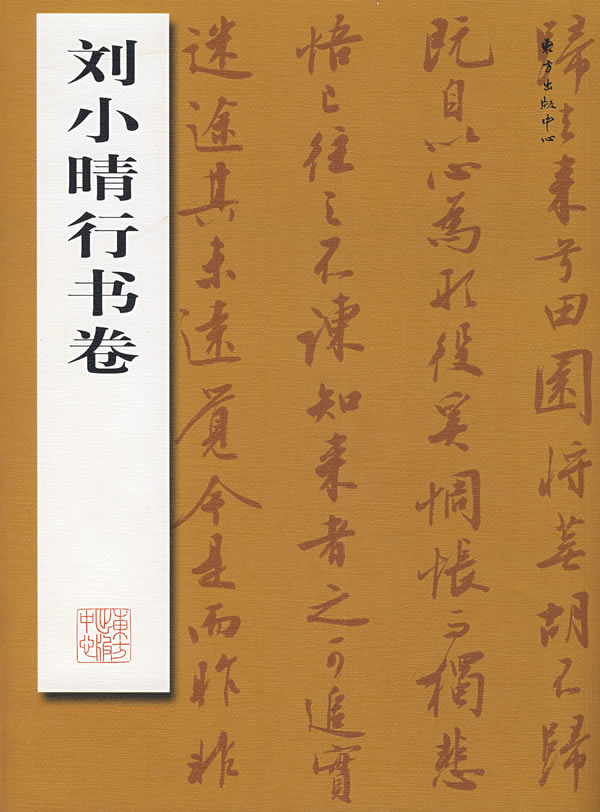 東方出版中心
歸去来兮田園将蕪胡不歸
既自以心為形役奚惆悵而獨悲
悟已往之不諫知来者之可追實
迷途其未遠覺今是而昨非
刘小晴行书卷
東方
出版
中心